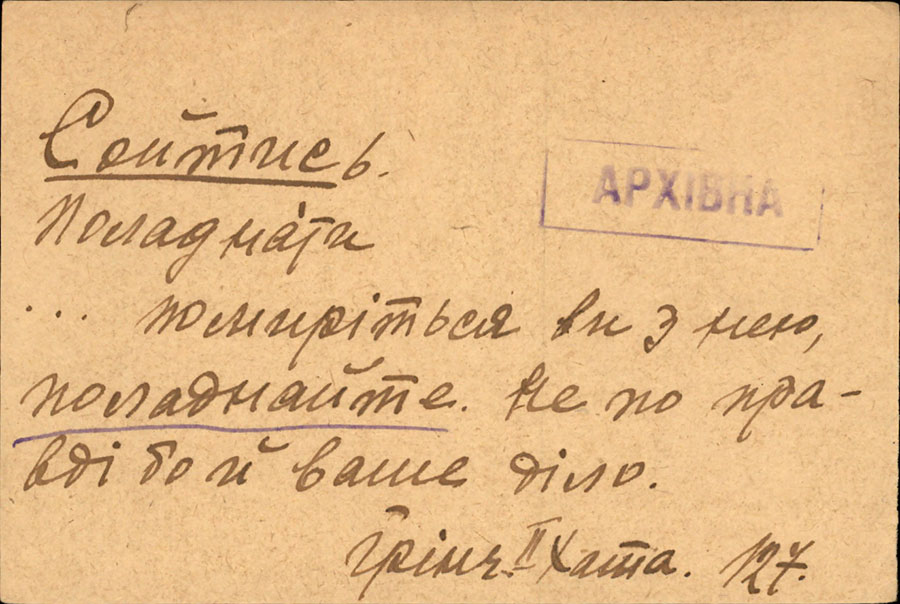 Сойтись.
АРХІВНА
Поладна́ти
... помиріться ви з нею,
поладнайте. Не по пра-
вді бо й ваше діло.
Грінч. II Хата. 127.